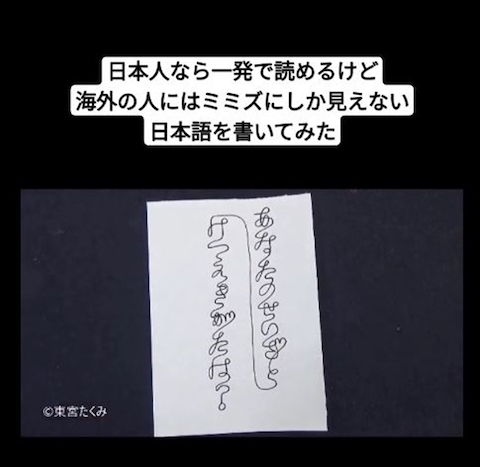 日本人なら一発で読めるけど
海外の人にはミミズにしか見えない
日本語を書いてみた
あなたのせいざと
けつえきがたは
©東宮たくみ